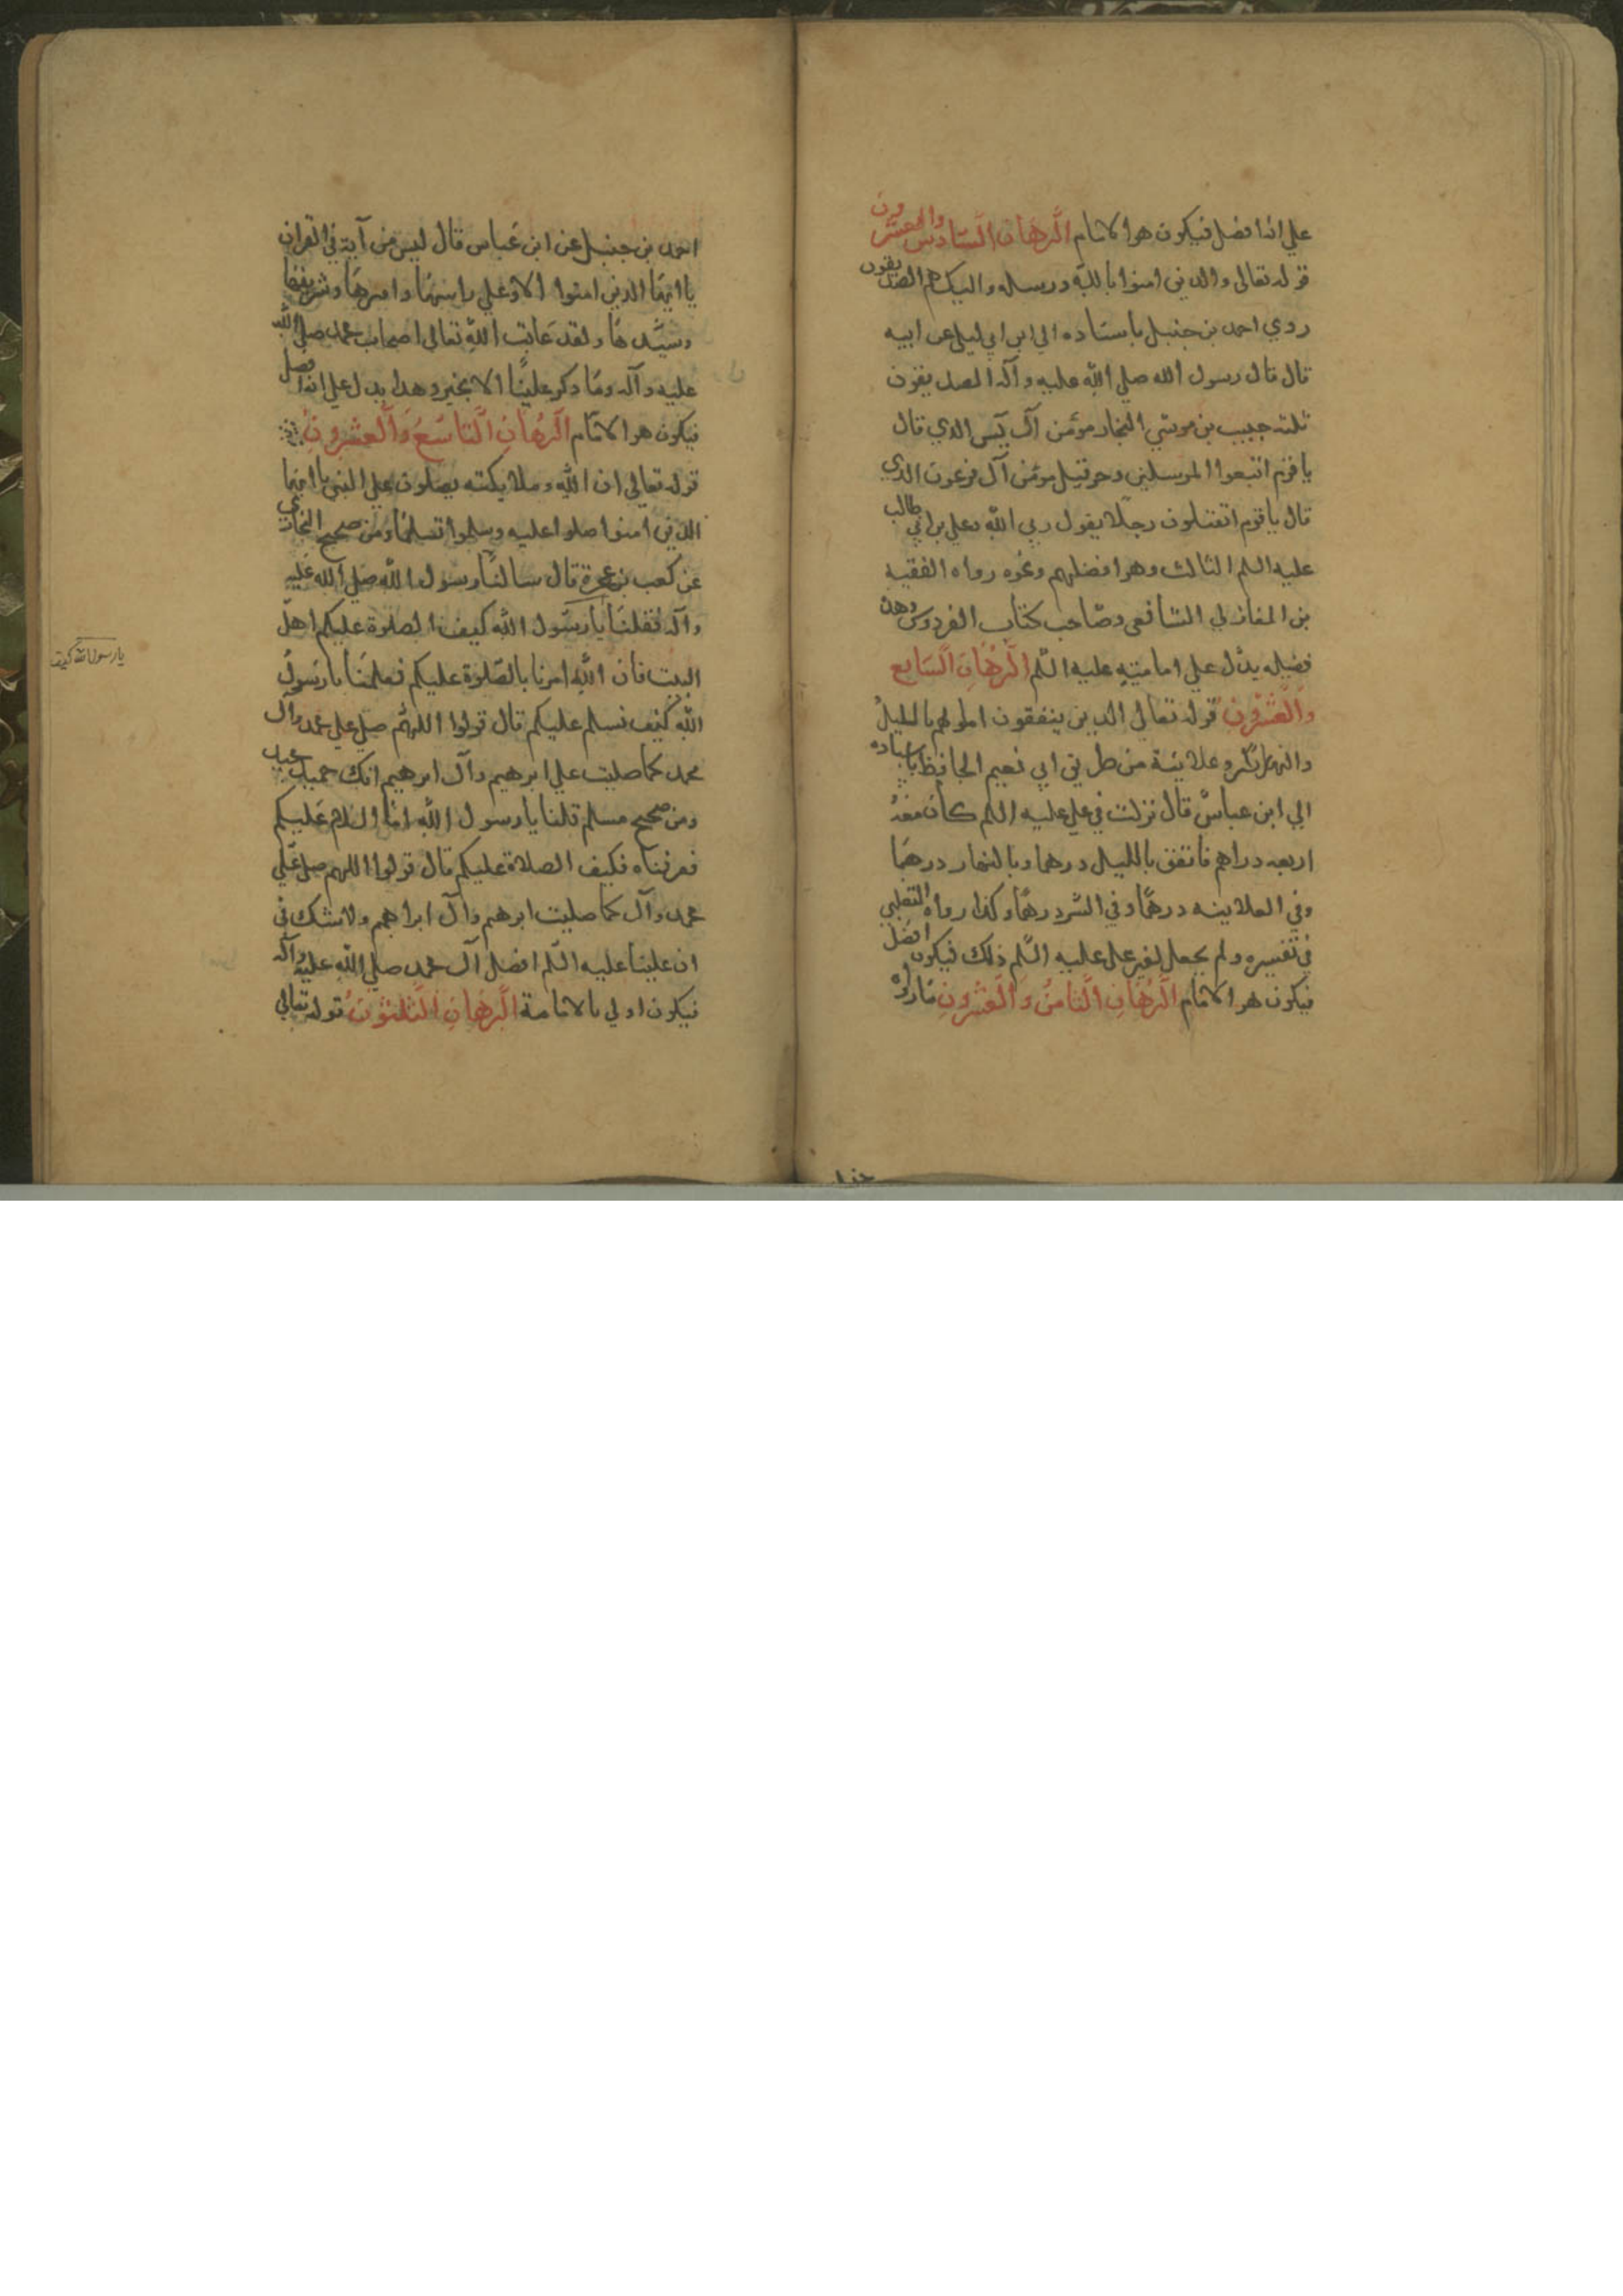 علي انه افضل فيكون هو الامام البرهان السادس والعشرون
قوله تعالى والذين امنوا بالله ورسله واليك هم الصديقون
روي احمد بن حنبل باسناده الي ابن ابي ليلى عن ابيه
قال قال رسول الله صلي الله عليه وآله الصديقون
ثلثه حبيب بن موسي النجار مومن آل يس الذي قال
يا قوم اتبعوا المرسلين وحزقيل مومن آل فرعون الذي
قال يا قوم اتقتلون رجلا يقول ربي الله وعلي بن ابي طالب
عليه السلم الثالث وهو افضلهم ونحوه رواه الفقيه
بن المغازلي الشافعي وصاحب كتاب الفردوس وهذه
فضيله يدل علي امامته عليه السلم البرهان السابع
والعشرون قوله تعالى الذين ينفقون اموالهم بالليل
والنهار سرا وعلانية من طريق ابي نعيم الحافظ باسناده
الي ابن عباس قال نزلت في علي عليه السلم كان معه
اربعه دراهم فانفق بالليل درهما وبالنهار درهما
وفي العلانيه درهما وفي السر درهما وكذا رواه الثعلبي
في تفسيره ولم يحصل لغير علي عليه السلم ذلك فيكون افضل
فيكون هو الامام البرهان الثامن والعشرون مارواه
احمد بن حنبل عن ابن عباس قال ليس من آية في القران
يا ايها الذين امنوا الا وعلي راسها واميرها وشريفها
وسيدها ولقد عاتب الله تعالي اصحاب محمد صلي الله
عليه وآله وما ذكر عليا الا بخير وهذا يدل علي انه افضل
فيكون هو الامام البرهان التاسع والعشرون
قوله تعالي ان الله وملايكته يصلون علي النبي يا ايها
الذين امنوا صلوا عليه وسلموا تسليما ومن صحيح البخاري
عن كعب بن عجرة قال سالنا رسول الله صلي الله عليه
وآله فقلنا يا رسول الله كيف الصلوة عليكم اهل
البيت فان الله امرنا بالصلوة عليكم فعلمنا يا رسول
يا رسول الله كيف
الله كيف نسلم عليكم قال قولوا اللهم صل علي محمد وآل
محمد كما صليت علي ابرهيم وآل ابرهيم انك حميد مجيد
ومن صحيح مسلم قلنا يا رسول الله اما السلام عليكم
فعرفناه فكيف الصلاة عليكم قال قولوا اللهم صل علي
محمد وآل كما صليت ابرهيم وآل ابراهيم ولا شك في
ان عليا عليه السلم افضل آل محمد صلي الله عليه وآله
فيكون اولي بالامامة البرهان الثلثون قوله تعالي